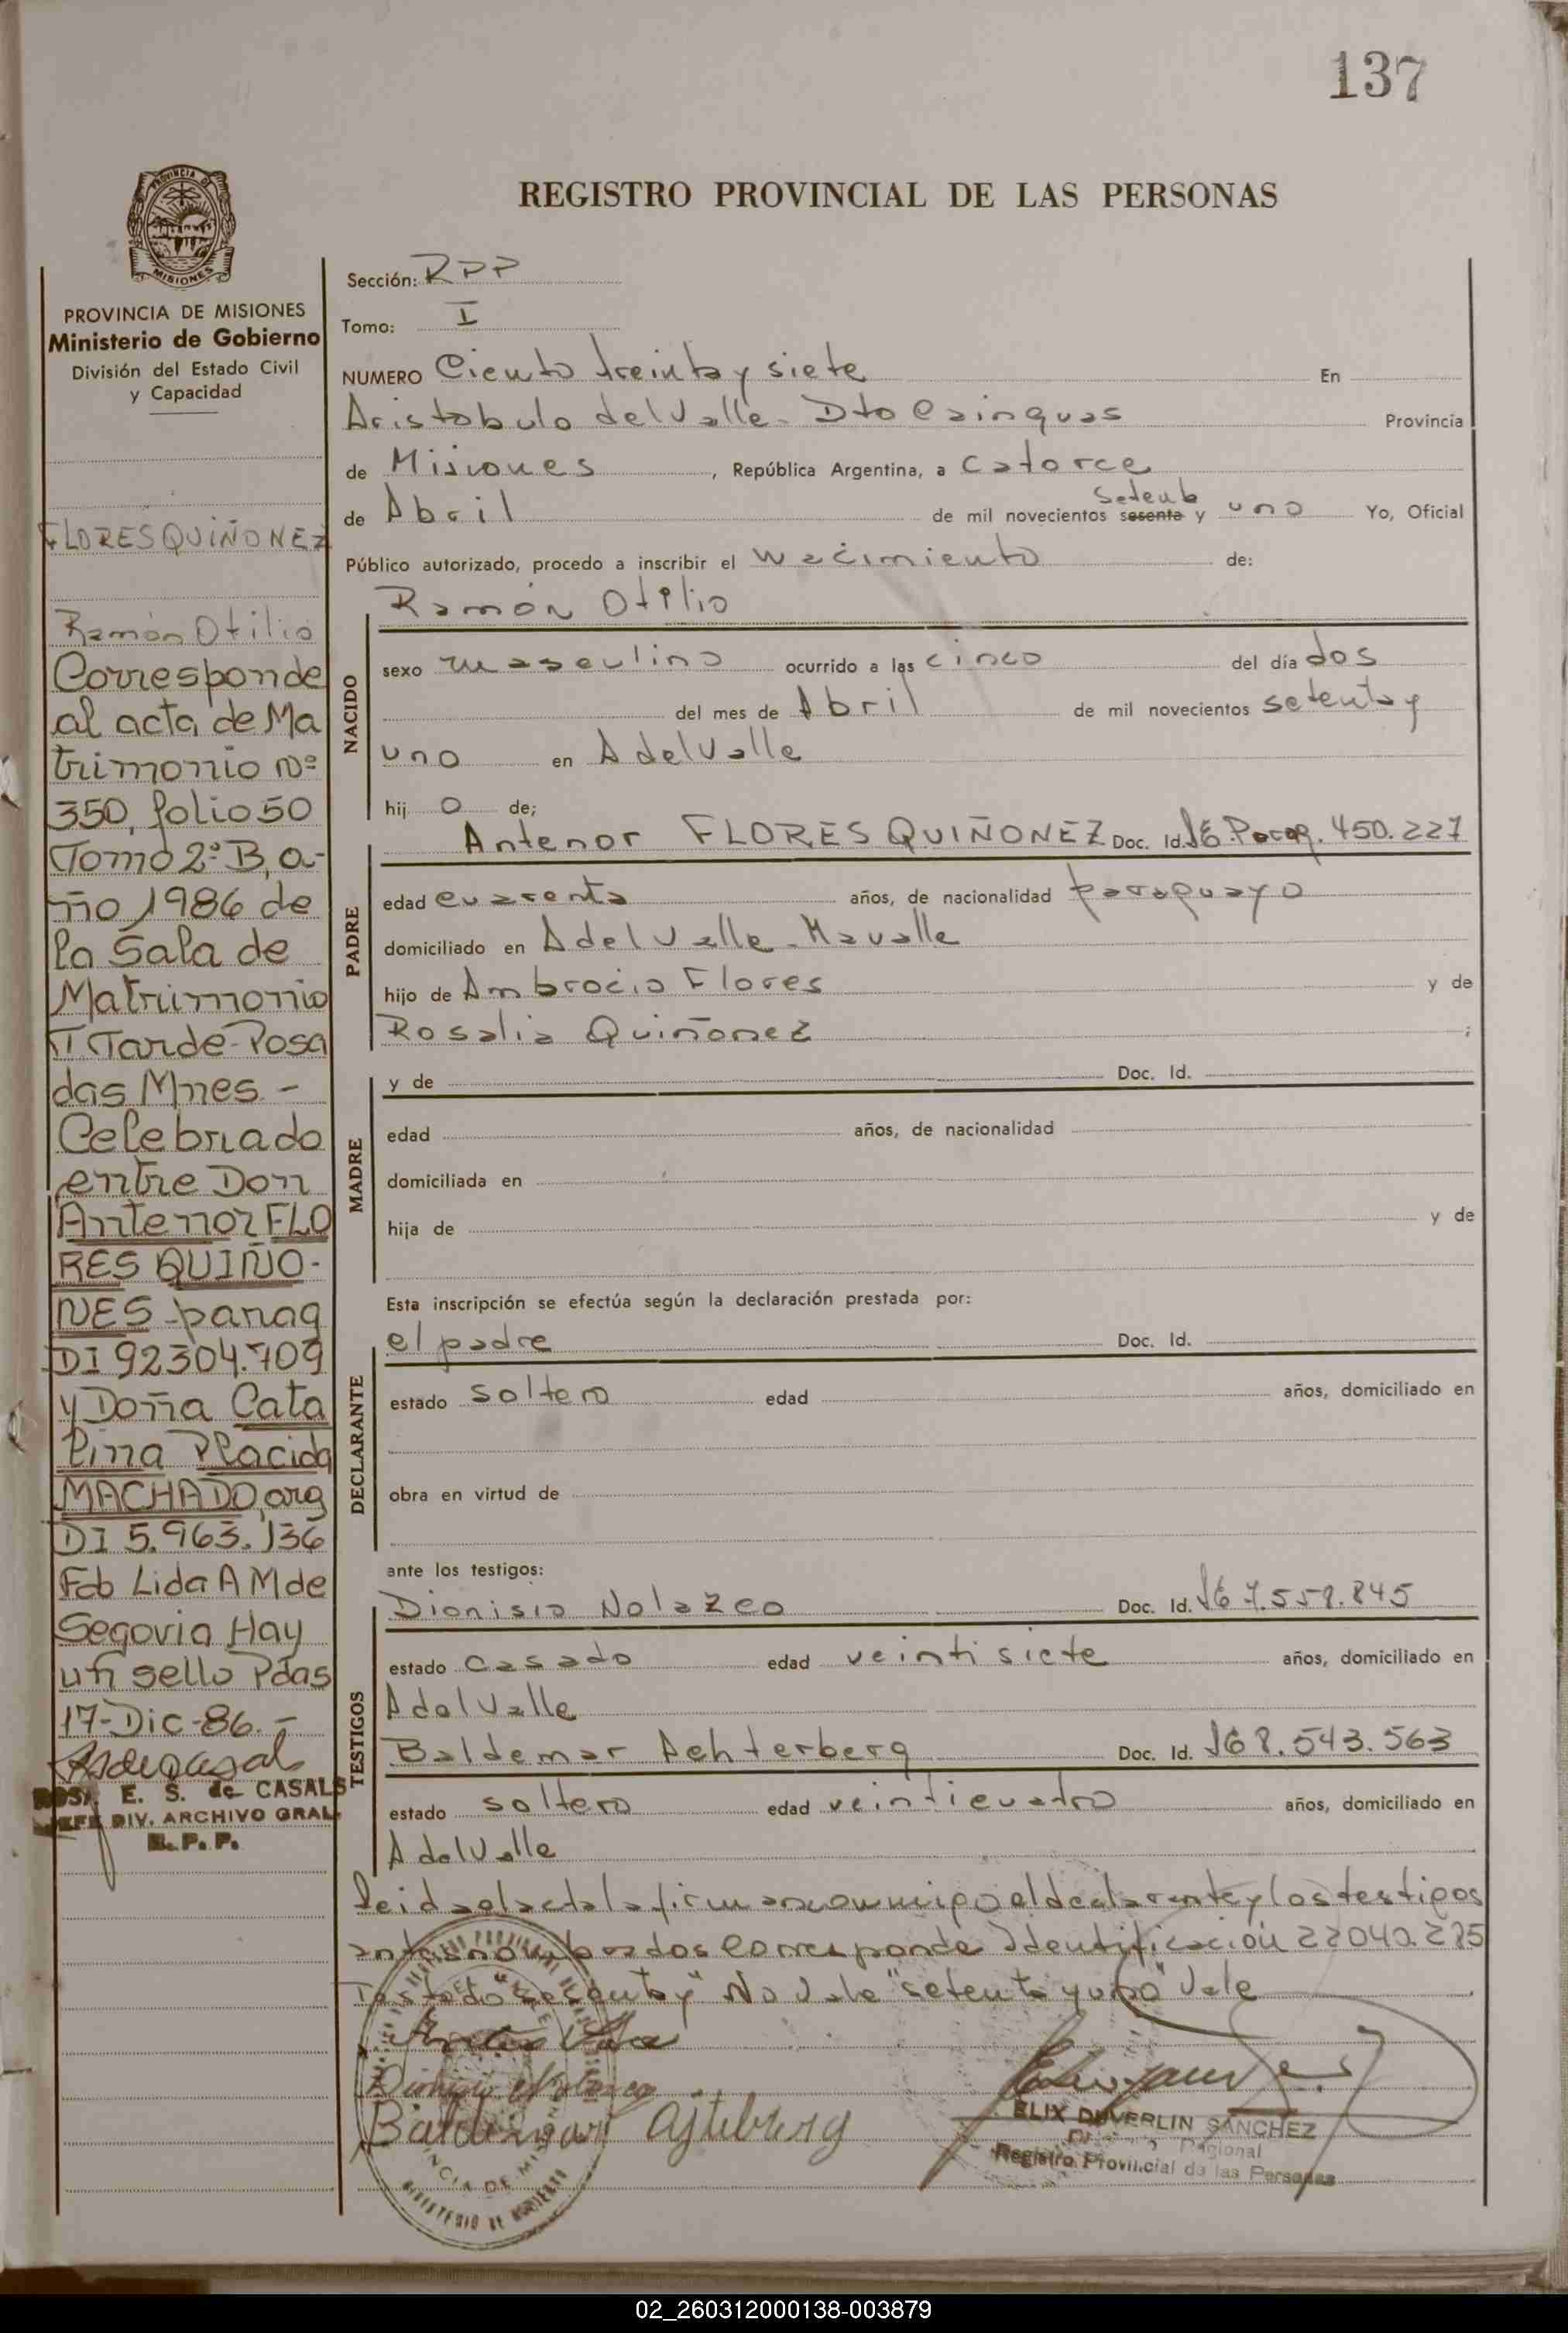 137
REGISTRO PROVINCIAL DE LAS PERSONAS
PROVINCIA DE MISIONES
Ministerio de Gobierno
División del Estado Civil
y Capacidad
FLORES QUIÑONEZ
Ramón Otilio
Corresponde
al acta de Ma
trimonio Nº
350, folio 50
Tomo 2º B, a-
ño 1986 de
la Sala de
Matrimonio
T Tarde-Posa
das Mnes -
Celebriado
entre Don
Antenor FLO
RES QUIÑO-
NES-parag
DI 92304.709
y Doña Cata
lina Placida
MACHADO, arg
DI 5.963.136
Fdo Lida A M de
Segovia Hay
un sello Pdas
17-Dic-86.-
E. S. de CASALS
JEFE DIV. ARCHIVO GRAL.
R. P. P.
Sección: RPP
Tomo: I
NUMERO Ciento treinta y siete En
Aristobulo del Valle - Dto Cainguas Provincia
de Misiones, República Argentina, a catorce
de Abril de mil novecientos sesenta setenta y uno Yo, Oficial
Público autorizado, procedo a inscribir el Nacimiento de:
Ramón Otilio
NACIDO
sexo masculino ocurrido a las cinco del día dos
del mes de Abril de mil novecientos setenta y
uno en A del Valle
hij o de;
Antenor FLORES QUIÑONEZ Doc. Id. Nº Parag. 450.227
PADRE
edad cuarenta años, de nacionalidad paraguayo
domiciliado en A del Valle - Mavalle
hijo de Ambrocio Flores y de
Rosalia Quiñonez ;
MADRE
y de Doc. Id.
edad años, de nacionalidad
domiciliada en
hija de y de
Esta inscripción se efectúa según la declaración prestada por:
el padre Doc. Id.
DECLARANTE
estado soltero edad años, domiciliado en
obra en virtud de
ante los testigos:
Dionisio Nolazco Doc. Id. Nº 7.558.845
TESTIGOS
estado casado edad veintisiete años, domiciliado en
A del Valle
Baldemar Achterberg Doc. Id. Nº 8.543.563
estado soltero edad veinticuatro años, domiciliado en
A del Valle
leida el acta la firman conmigo el declarante y los testigos
antes nombrados Corresponde Identificación 22040.275
Testado "sesenta y" No Vale "setenta y uno" Vale
Dionisio Nolazco
ELIX DUVERLIN SANCHEZ
Regional
Registro Provincial de las Personas
02_260312000138-003879